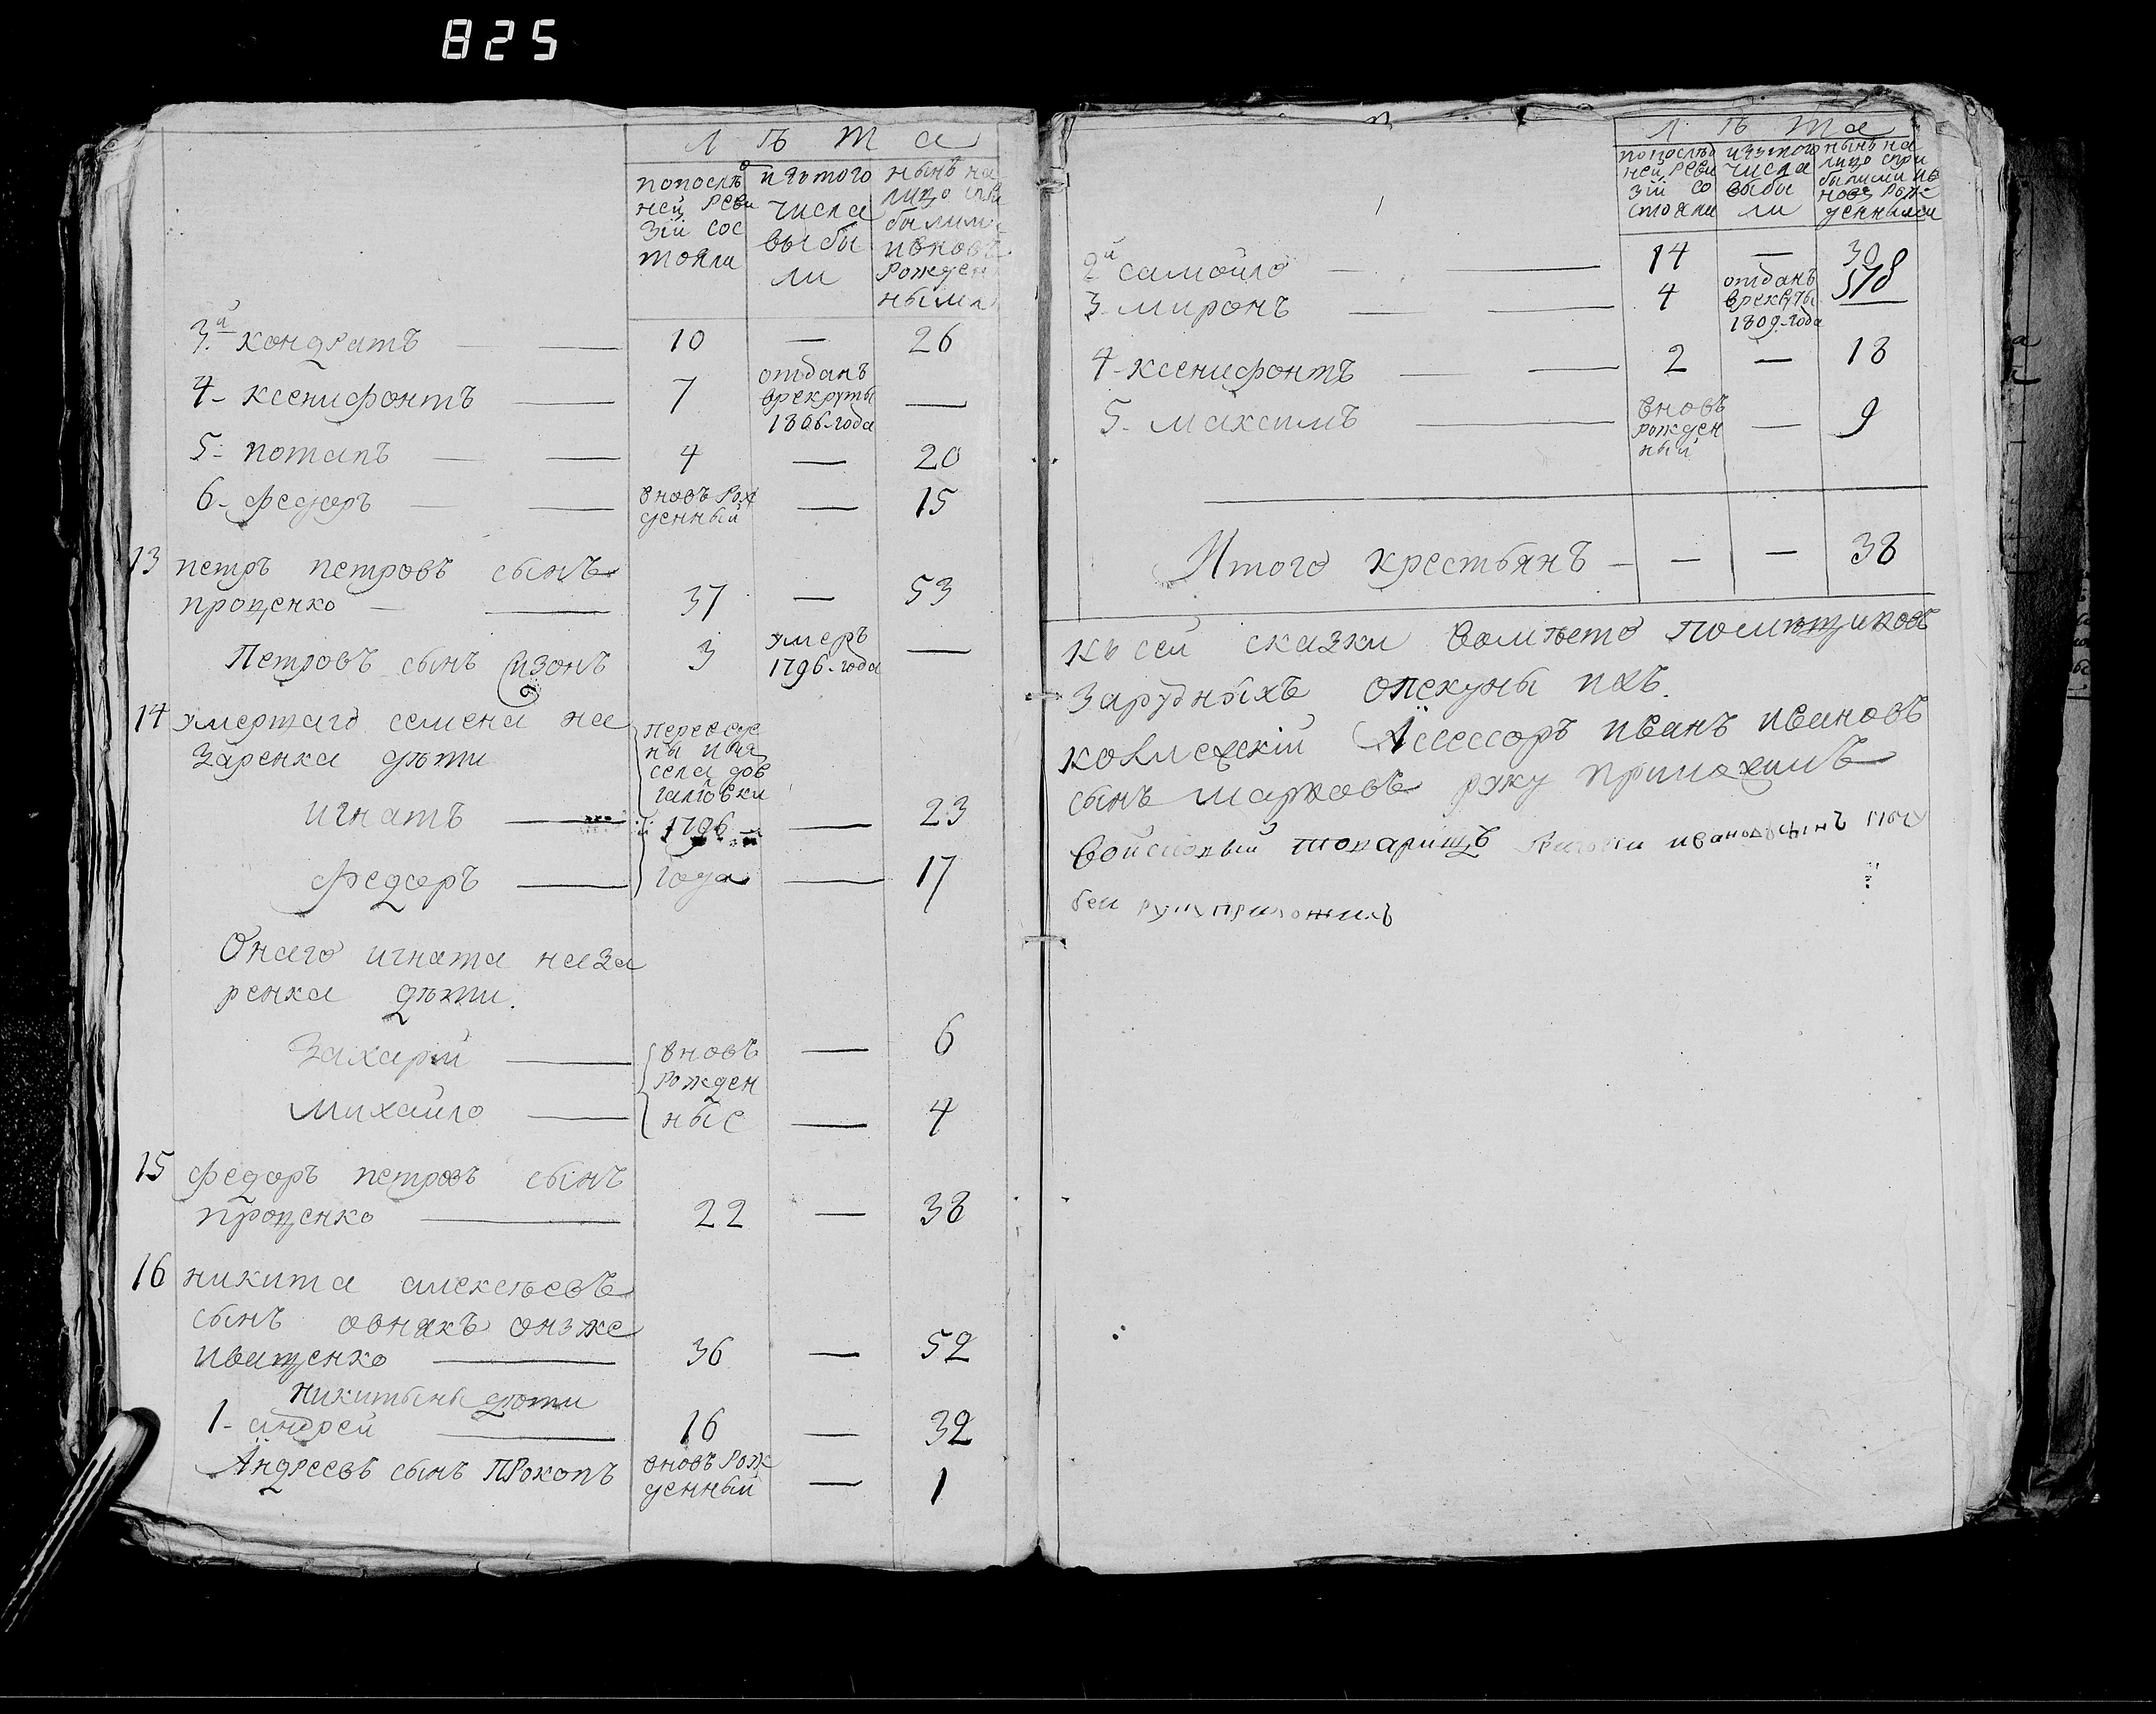 825
Л ѣ т а
попослѣд
ней реви
зiи сос
тояли
изътого
числа
выбы
ли
нынѣ на
лицо спри
былими
ивновь
рожден
ными
3й кондратъ — — 10 — 26
4- ксенифонтъ — 7 отданъ
врекруты
1806-года —
5- потапъ — — 4 — 20
6- федоръ — — вновь рож
денный — 15
13 петръ петровъ сынъ
проценко — — 37 — 53
Петровъ сынъ Сизонъ 3 умеръ
1796-года —
14 умершаго семена на
заренка дѣти
переведе
ны изъ
села дов
галювки
игнатъ — 1796 — 23
федоръ — года — 17
Онаго игната наза
ренка дѣти.
Захарiй — вновь — 6
рожден
михайло — ные — 4
15 федоръ петровъ сынъ
проценко — 22 — 38
16 никита алексѣевъ
сынъ овнякъ онъже
иващенко — 36 — 52
никитины дѣти
1- андрей — 16 — 32
Андреевъ сынъ Прокопъ вновь рож
денный — 1
Л ѣ т а
попослѣд
ней реви
зiи со
стояли
изътого
числа
выбы
ли
нынѣ на
лицо спри
былими ив
новь рож
денными
2й самойло — — 14 — 30
3- миронъ — — 4 отданъ
врекруты
1809-года
4- ксенифонтъ — — 2 — 18
5- максимъ — вновь
рожден
ный — 9
Итого крестьянъ — — — 38
къ сей сказки вомѣсто помѣщиковъ
Зарудныхъ опекуны ихъ.
коллежскiй Асессоръ иванъ ивановъ
сынъ марковъ руку приложилъ
войсковый товарищъ ивановъ сынъ
руку приложилъ